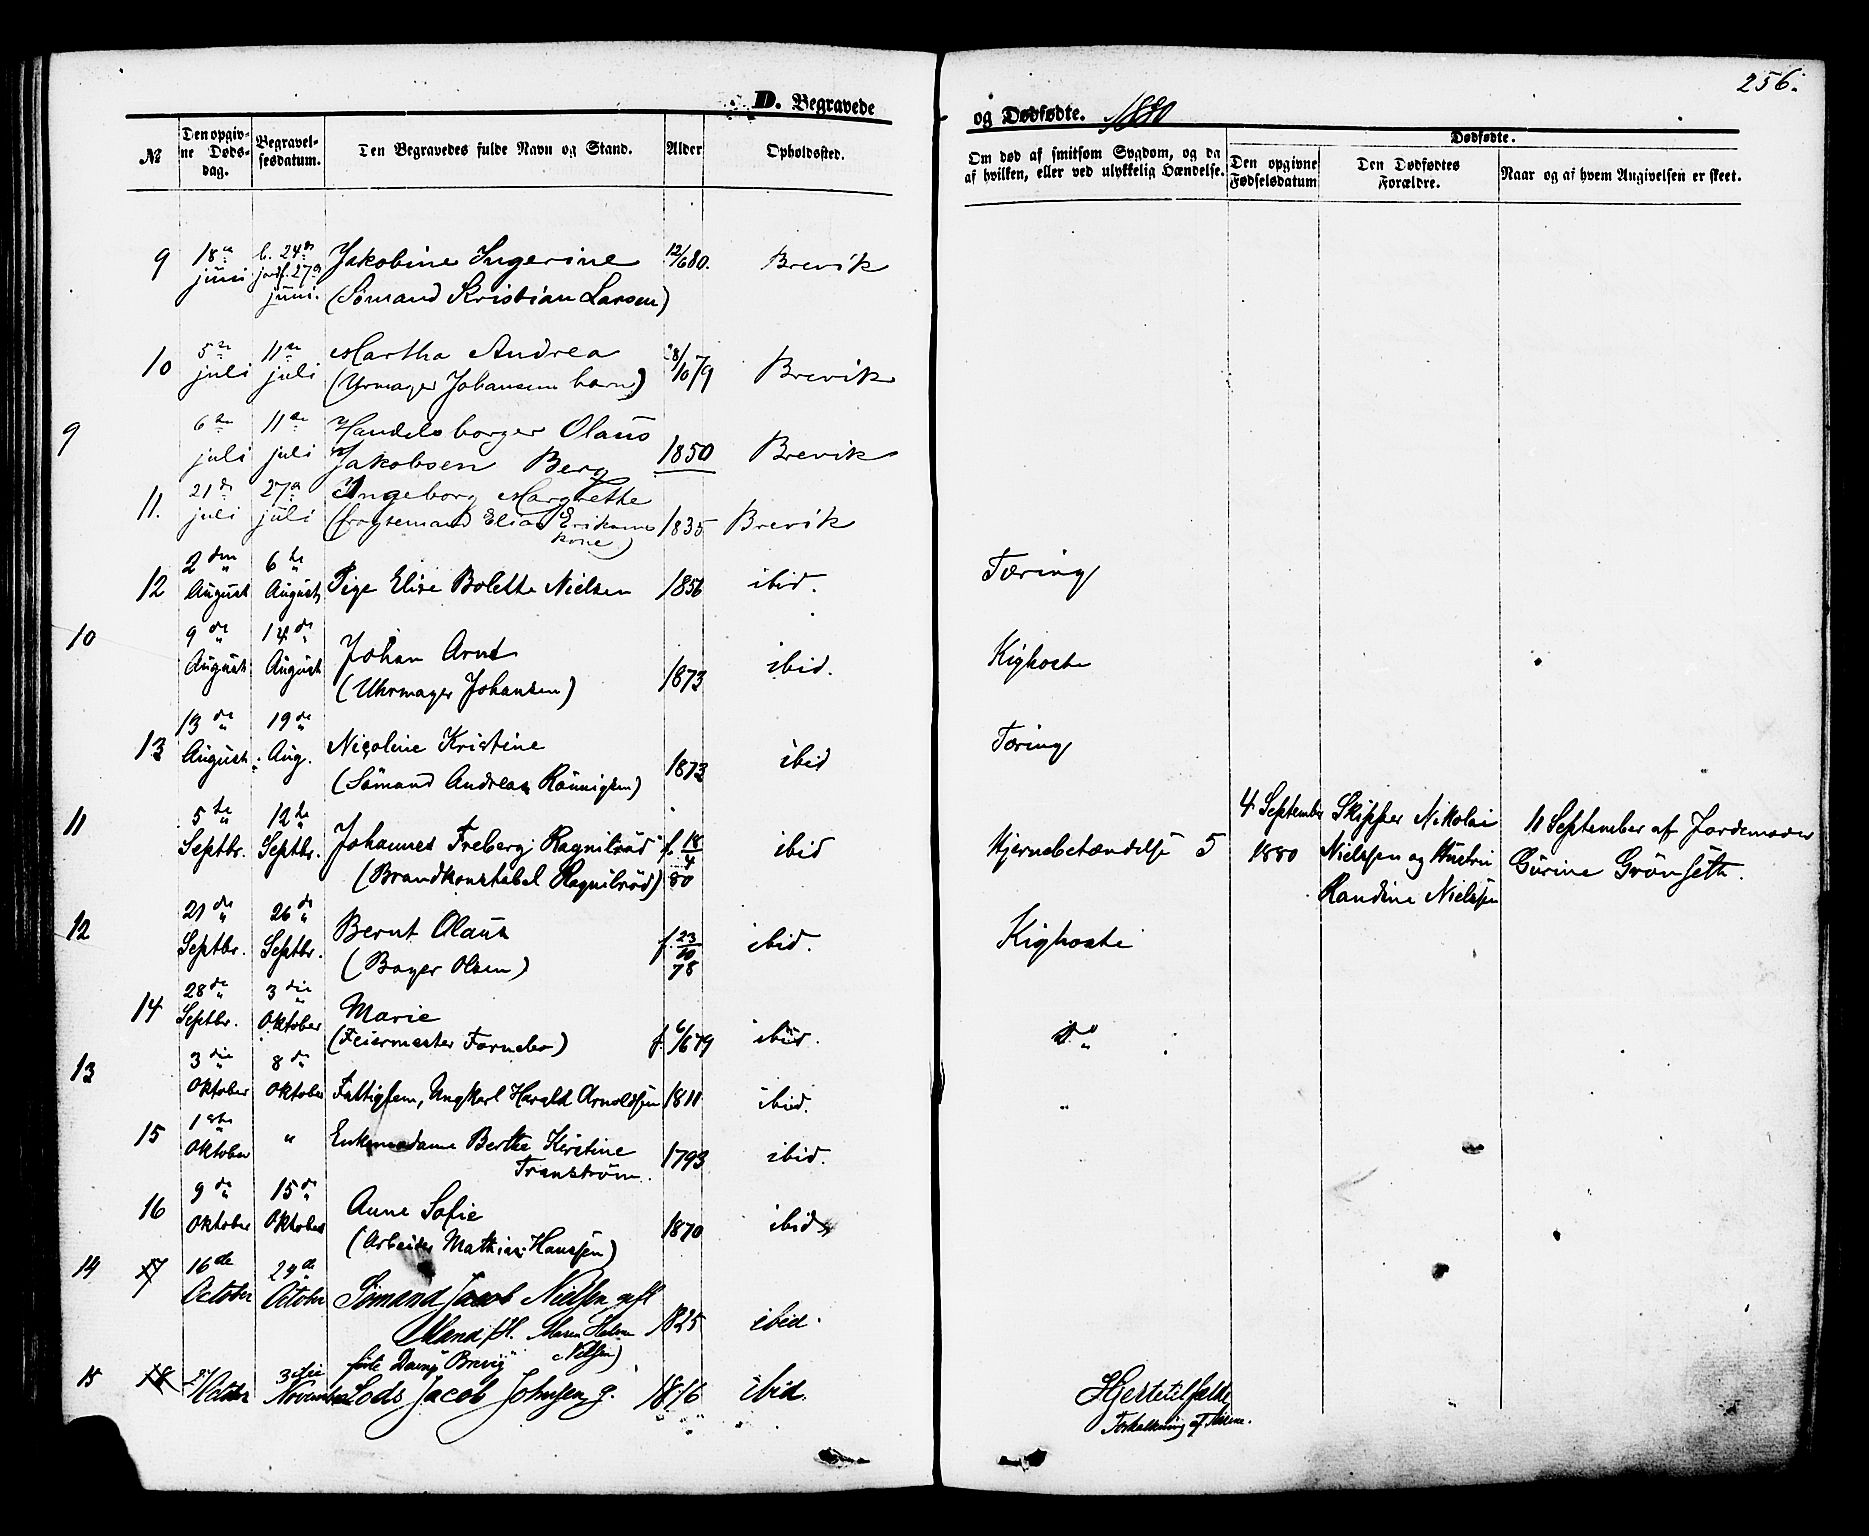 256.
D. Begravede
og Dødfødte. 1880
№
Den opgiv-
ne Døds-
dag.
Begravel-
sesdatum.
Den Begravedes fulde Navn og Stand.
Alder
Opholdssted.
Om død af smitsom Sygdom, og da
af hvilken, eller ved ulykkelig Hændelse.
Dødfødte.
Den opgivne
Fødselsdatum
Den Dødfødtes
Forældre.
Naar og af hvem Angivelsen er skeet.
9 18de b. 24de Jakobine Ingerine 12/6 80. Brevik
juni jordf. 27de
juni. (Sømand Kristian Larsen)
10 5te 11te Martha Andrea 18/10 79 Brevik
juli juli (Urmager Johansens barn)
9 6te 11te Handelsborger Olaus
juli juli Jakobsen Berg 1850 Brevik
11. 21de 27de Ingeborg Margrethe
juli juli Elias Eriksens 1835 Brevik
kone)
12 2den 6te
August August Pige Elise Bolette Nielsen 1856 ibid. Tæring
10 9de 14de Johan Arnt ibid. Kighoste
August August (Uhrmager Johansen) 1873
13 13de 19de Nicoline Kristine ibid Tæring
August Aug. (Sömand Andreas Rönnigsen) 1873
11 5te 12te
Septbr. Septbr. Johannes Freberg Ragnilröd f. 18/4 80 ibid Hjernebetændelse
(Brandkonstabel Ragnilröd)
5 4 September 1880
Skipper Nikolai
Nielssen og Hustru
Randine Nielssen
11 September af Jordemoder
Gurine Grönseth.
12 21de 26de Bernt Olaus f. 23/10 78 ibid. Kighoste
Septbr. Septbr. (Bager Olsen)
14 28de 3die Marie
Septbr. Oktober (Feiermester Fornebo) f. 6/6 79 ibid. do
13 3die 8de
Oktober Oktober Fattiglem, Ungkarl Harald Arnoldsen 1811 ibid. "
15 1ste " Enkemadame Berthe Kirstine 1793 ibid.
Oktober Tranström.
16 9de 15de Anne Sofie 1870 ibid.
Oktober Oktober (Arbeider Mathias Hanssen)
14 17 16de 29de
October October Sømand Jacob Nielsen gift
Mand (H. Maren Helene 1825 ibid.
Nielsen)
Brevig"
15 18 October 3die
November Lods Jacob Johnsen g. 1816 ibid. Hjertetilfælde
Forkalkning af